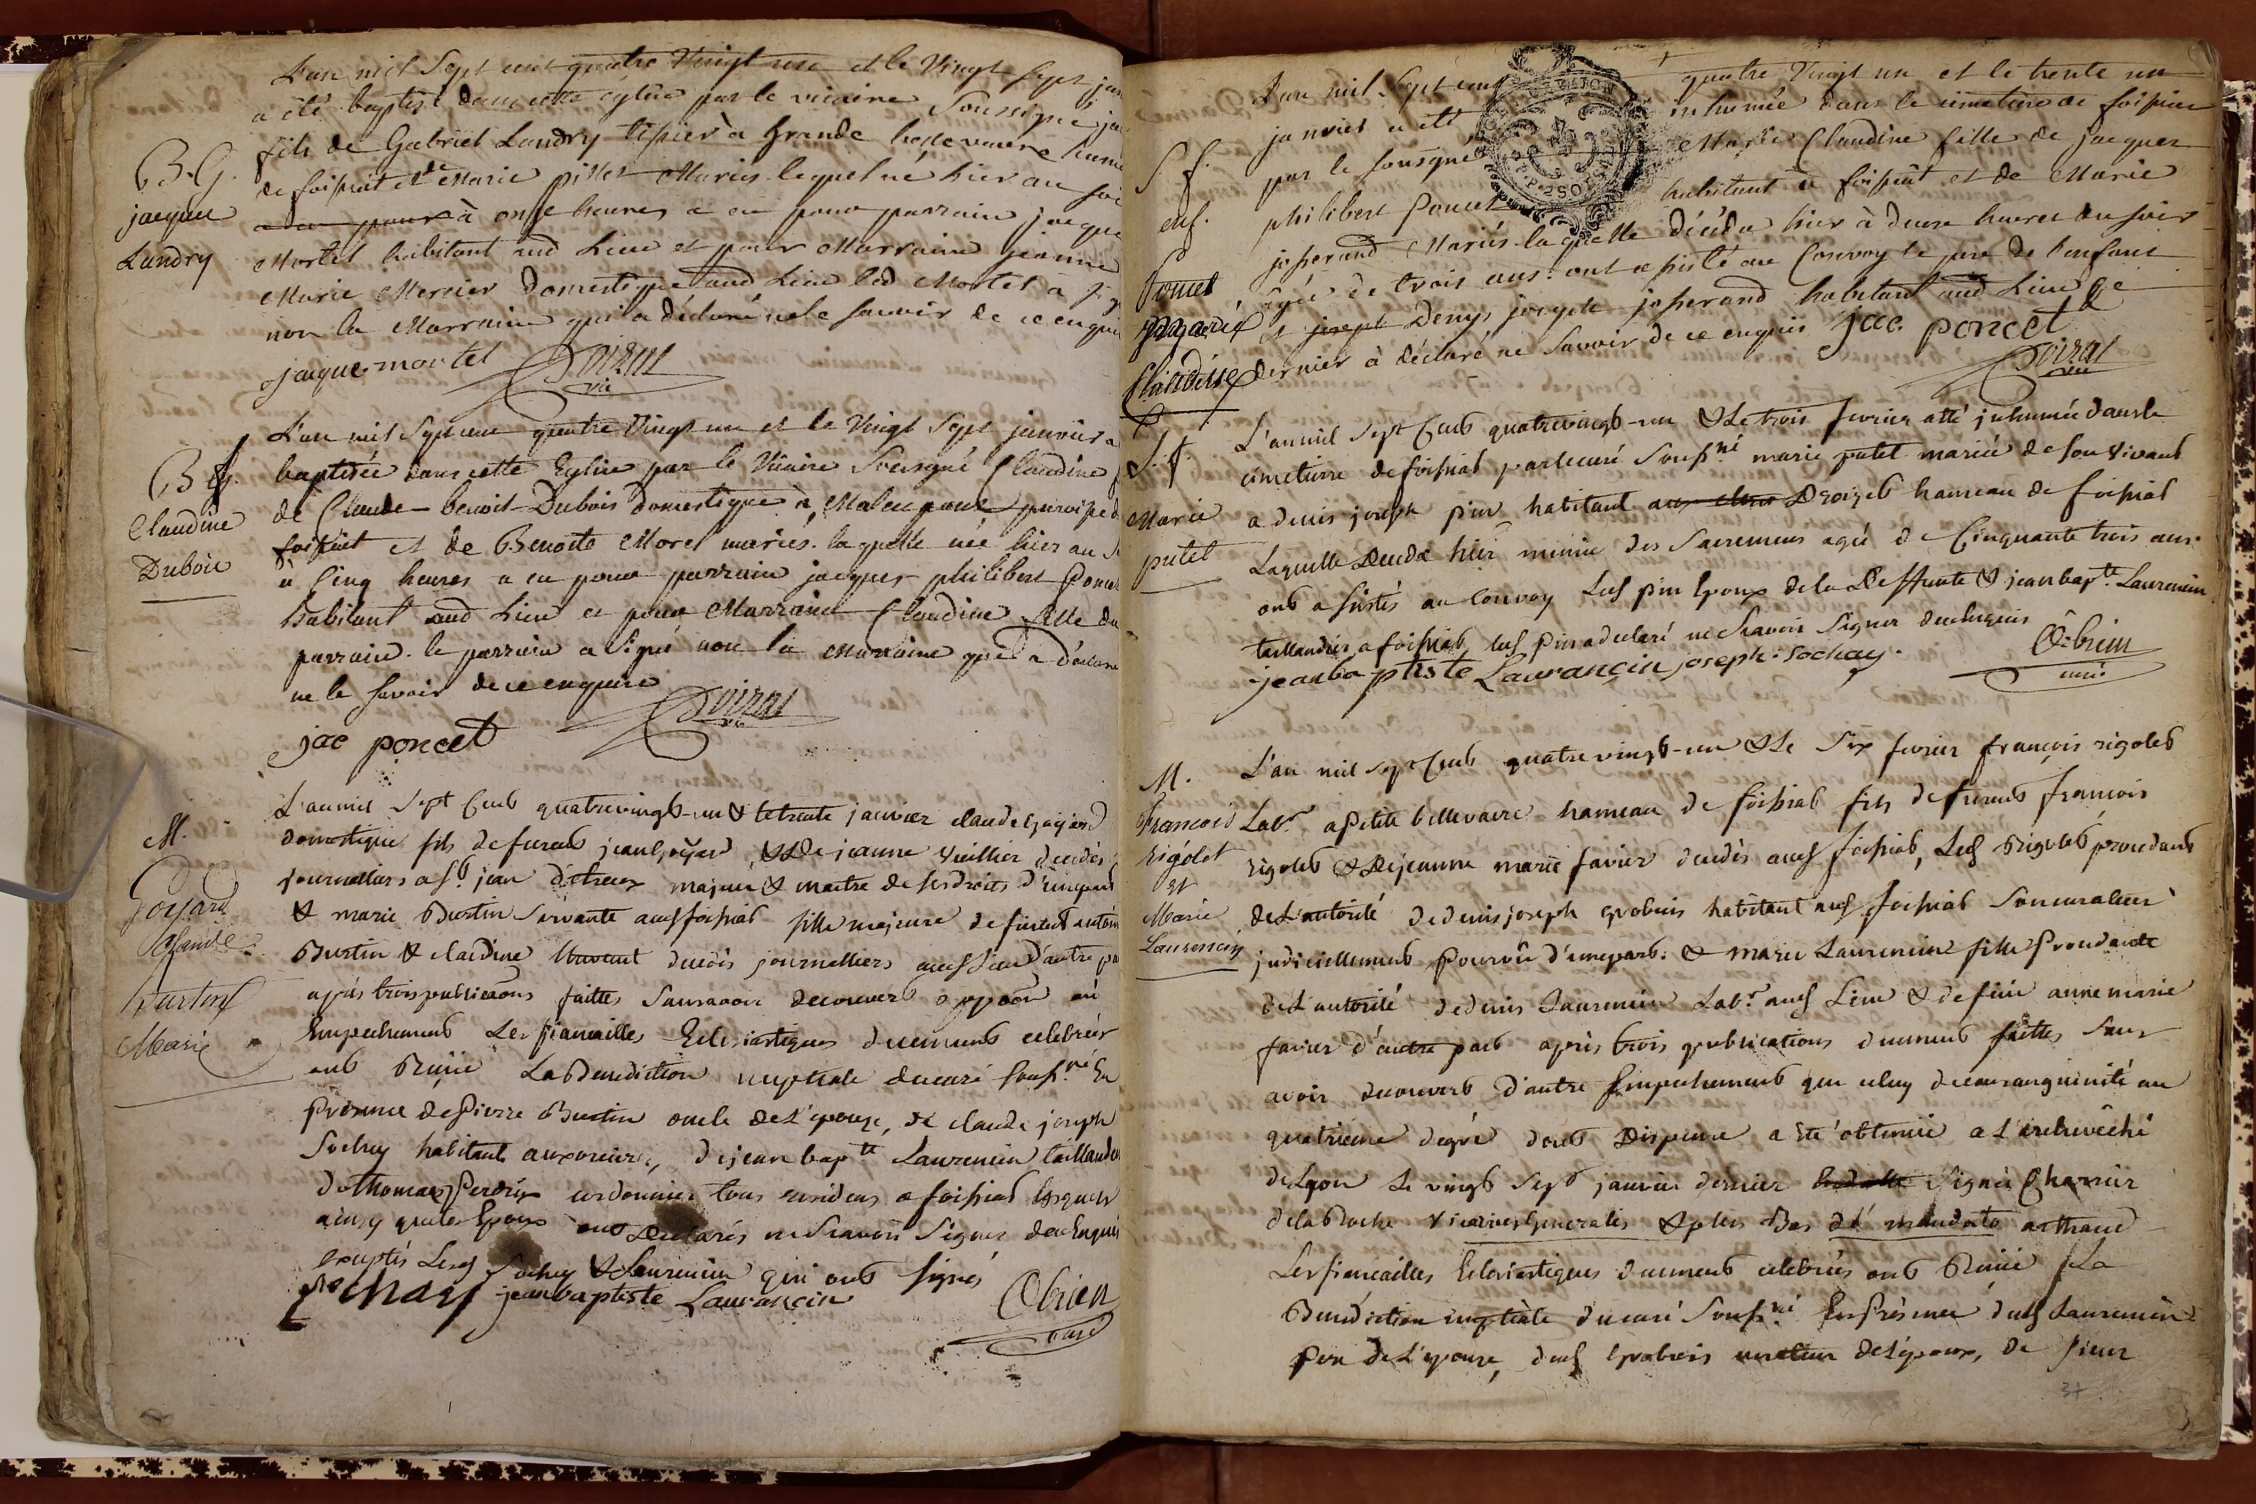 L'an mil Sept cent quatre Vingt une et le Vingt Sept jan
a été baptisé dans cette église par le vicaire Soussigné ja
fils de Gabriel Landry tissier à Grande bellevavre hame
de foissiat et de Marie pillet Mariés lequel né hier au soi
à onze heures a eu pour parrain jacque
Mortel habitant aud Lieu et pour Marraine jeanne
Marie Mercier domestique aud Lieu led Mortel a sig
non la Marraine qui a déclaré ne le savoir de ce enqui
jaque mortel Doirat
vic
B. G.
jacque
Landry
L'an mil Sept cent quatre Vingt un et le Vingt Sept janvier a
baptisée dans cette Eglise par le Vicaire Sousigné Claudine f
de Claude Benoit Dubois domestique à Malaupont paroisse d
foissiat et de Benoite Morel mariés. laquelle née hier au S
à Cinq heures a eu pour parrain jacques philibert Poncet
habitant aud Lieu et pour Marraine Claudine fille du
parrain. le parrain a Signé non la Marraine qui a déclaré
ne le savoir de ce enquise
Doirat
vic
jac poncet
B f.
Claudine
Dubois
L'an mil Sept Cent quatrevingt-un & le trente janvier claude goyard
domestique fils de furent jean goyard & De jeanne Vieillier decedés
journalliers a St jean d'étreux majeur & maitre de ses droits d'une part
& marie Burtin Servante aud foissiat fille majeure de furent antoin
Burtin & claudine decedés journalliers aud Lieu d'autre pa
après trois publications faittes Sans avoir decouvert oppoön ni
Empechement Les fiançailles Eclesiastiques duement celebrées
ont Reçüe La Benediction nuptiale du curé souss.né En
Presence de Pierre Burtin oncle de L'epouse, de claude joseph
Sochay habitants, de jean bap.tte Laurencin taillandier
de thomas Perdrix cordonnier tous residens a foissiat lesquels
ainsy que les Epoux ont Declarés ne Scavoir Signer de ce Enquis
exceptés Lesd Sochay & Laurencin qui ont signés
Sochay jean baptiste Laurançin Obrien
curé
M.
Goyard
Claude
Burtin
Marie
L'an mil Sept cent quatre Vingt un et le trente un
janvier a été inhumée dans le cimetière de foissiat
par le sousigné Marie Claudine fille de jacques
philibert Poncet habitant à foissiat et de Marie
josserand Mariés laquelle décéda hier à deux heures du soir
agée de trois ans: ont assisté au Convoy le pere de l'enfant
et joseph Denys joseph josserand habitant aud Lieu Ce
dernier à déclaré ne savoir de ce enquis jac poncet
Doirat
vic
S. f.
enf.
Poncet
Marie
Claudine
L'an mil Sept Cent quatrevingt-un & Le trois fevrier a été inhumée dans le
cimetierre de foissiat par le curé Souss.né marie putet mariée de son vivant
a denis joseph pin habitant Desoizet hameau de foissiat
Laquelle Deceda hier munie des Sacremens agée de Cinquante trois ans.
ont assistés au Convoy Led pin Epoux de la Deffunte & jean bap.te Laurencin
taillandier a foissiat, led pin a declaré ne Scavoir Signer de ce Enquis
jean baptiste Laurançin joseph Sochay.
Obrien
curé
S. f.
Marie
putet
L'an mil Sept Cent quatre vingt-un & Le Six fevrier françois rigolet
Lab.r a Petite bellevavre hameau de foissiat fils de furent françois
rigolet & De jeanne marie favier decedés aud foissiat, Led Rigolet procedant
de L'autorité de denis joseph habitant aud foissiat Son curateur
judiciellement Pourvû d'une part. & marie Laurencin fille Procedante
de L'autorité de denis Laurencin Lab.r aud Lieu & de füe anne marie
favier d'autre part après trois publications duement faittes Sans
avoir decouvert d'autre Empechement que celuy de consanguinité au
quatrieme degré dont Dispense a été obtenüe a L'archevêché
de Lyon Le vingt Sept janvier dernier Signé Charrier
de la Roche Vicarius Generalis & plus Bas de mandato arthaud
Les fiançailles Eclesiastiques duement celebrées ont Reçüe La
Benediction nuptiale du curé Souss.né En Présence dud Laurencin
Pere de L'epouse, dud curateur de L'epoux, de Sieur
M.
Francois
rigolet
et
Marie
Laurencin
37